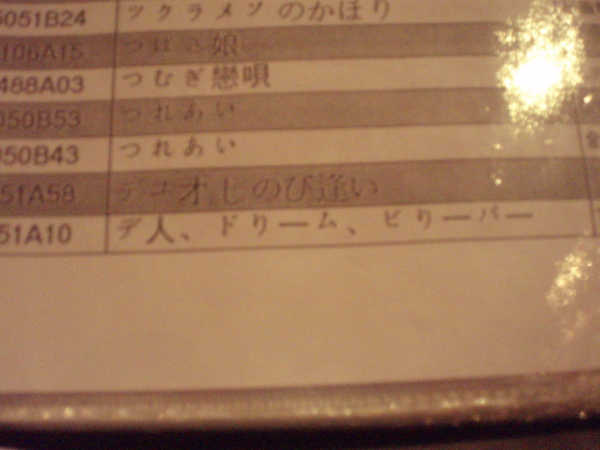 5051B24 ツクラメソのかほり
106A15 つばき娘
488A03 つむぎ戀唄
050B53 つれあい
050B43 つれあい
51A58 デュオしのび逢い
51A10 デ人、ドリーム、ビリーバー